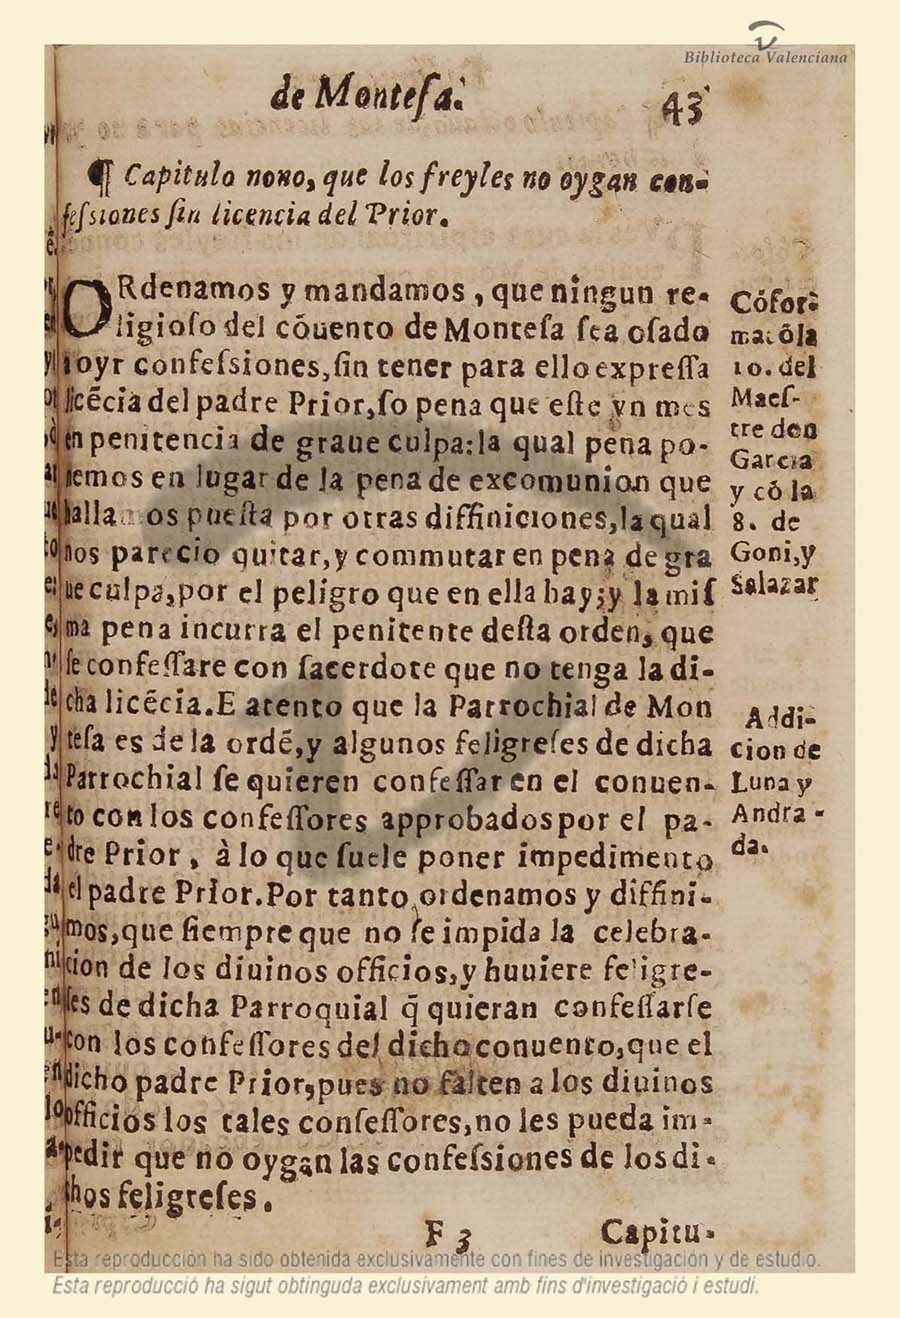 Biblioteca Valenciana
de Montesa.
43
¶ Capitulo nono, que los freyles no oygan con-
fessiones sin licencia del Prior.
ORdenamos y mandamos, que ningun re-
ligioso del cóuento de Montesa sea osado
oyr confessiones, sin tener para ello expressa
licēcia del padre Prior, so pena que este vn mes
en penitencia de graue culpa: la qual pena po-
nemos en lugar de la pena de excomunion que
hallamos puesta por otras diffiniciones, la qual
nos parecio quitar, y commutar en pena de gra
ue culpa, por el peligro que en ella hay; y la mis
ma pena incurra el penitente desta orden, que
se confessare con sacerdote que no tenga la di-
cha licēcia. E atento que la Parrochial de Mon
tesa es de la ordē, y algunos feligreses de dicha
Parrochial se quieren confessar en el conuen-
to con los confessores approbados por el pa-
dre Prior, à lo que suele poner impedimento
el padre Prior. Por tanto ordenamos y diffini-
mos, que siempre que no se impida la celebra-
cion de los diuinos officios, y huuiere feligre-
ses de dicha Parroquial q̄ quieran confessarse
con los confessores del dicho conuento, que el
dicho padre Prior, pues no falten a los diuinos
officios los tales confessores, no les pueda im-
pedir que no oygan las confessiones de los di-
chos feligreses.
Cófor
ma có la
10. del
Maes-
tre don
Garcia
y có la
8. de
Goni, y
Salazar
Addi-
cion de
Luna y
Andra-
da.
F 3
Capitu-
Esta reproducción ha sido obtenida exclusivamente con fines de investigación y de estudio.
Esta reproducció ha sigut obtinguda exclusivament amb fins d'investigació i estudi.